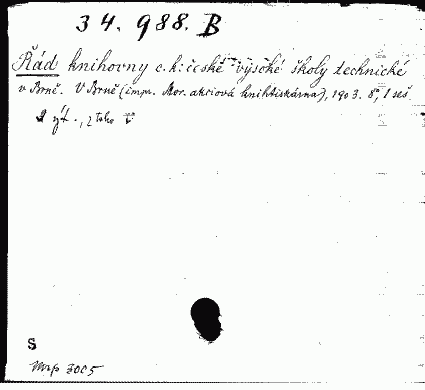 34.988.B
Řád knihovny c. k. české vysoké školy technické
v Brně. V Brně (impr. Mor. akciová knihtiskárna), 1903. 8°, 1 seš.
2 toho
S
3005